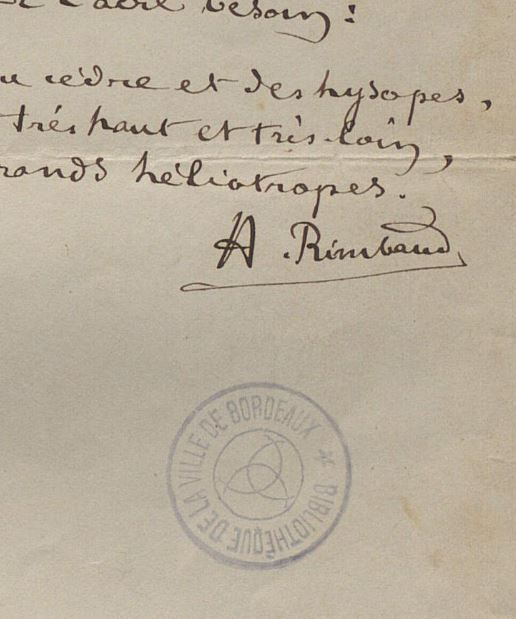 l'âcre besoin :
u cèdre et des hysopes,
trés haut et très-loin,
rands héliotropes.
A. Rimbaud
BIBLIOTHÈQUE DE LA VILLE DE BORDEAUX *